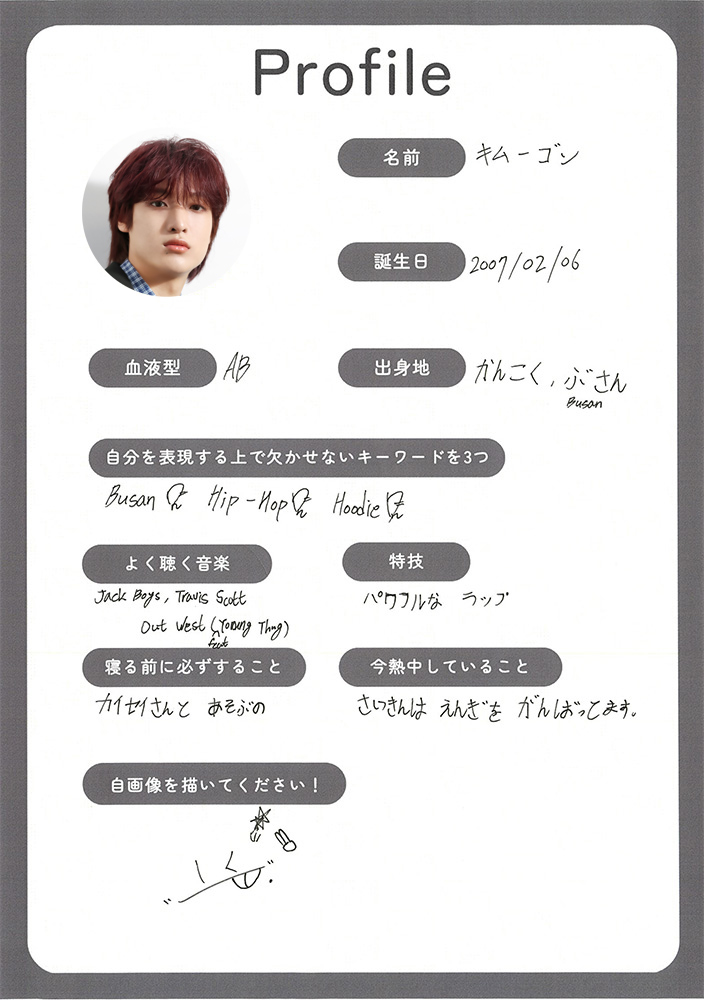 Profile
名前
キムーゴン
誕生日
2007/02/06
血液型
AB
出身地
かんこく、ぶさん
Busan
自分を表現する上で欠かせないキーワードを3つ
Busan Hip-Hop Hoodie
よく聴く音楽
Jack Boys, Travis Scott
Out West (Young Thug)
feat
特技
パワフルな ラップ
寝る前に必ずすること
カイセイさんと あそぶの
今熱中していること
さいきんは えんぎを がんばってます。
自画像を描いてください！